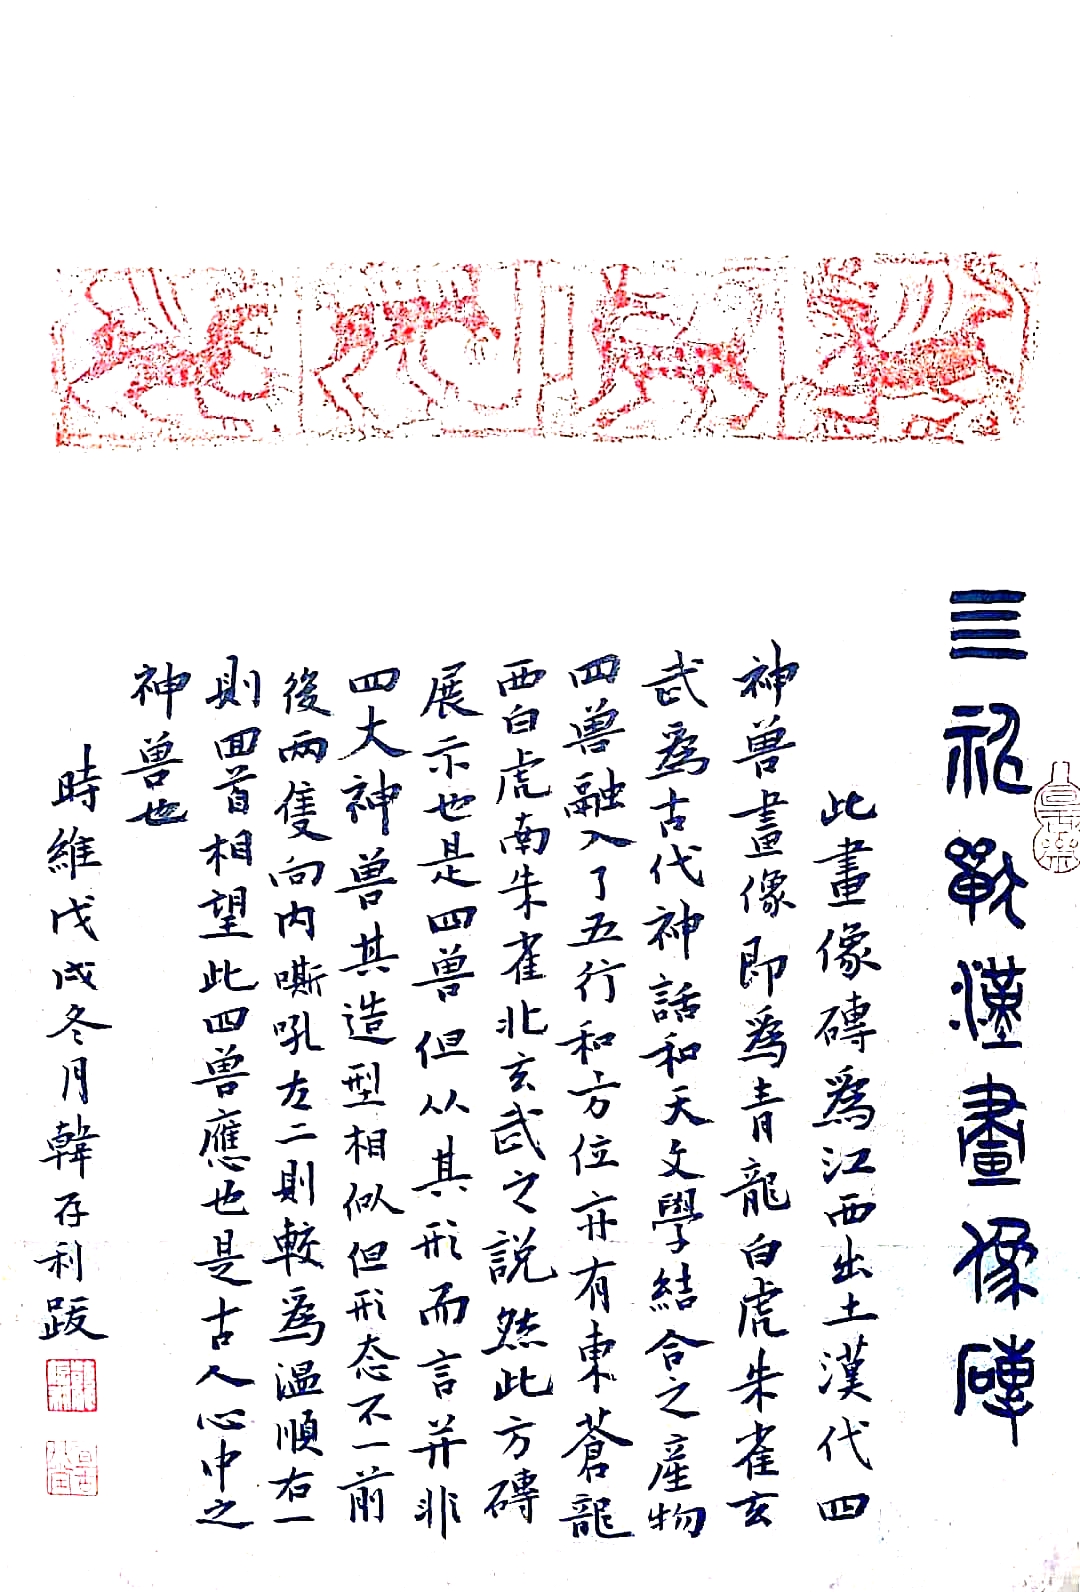 亖神獸漢畫像磚
此畫像磚爲江西出土漢代四
神兽畫像即爲青龍白虎朱雀玄
武爲古代神話和天文學結合之産物
四兽融入了五行和方位亦有東蒼龍
西白虎南朱雀北玄武之説然此方磚
展示也是四兽但从其形而言并非
四大神兽其造型相似但形态不一前
後两隻向内嘶吼左二則較爲温順右一
則回首相望此四兽應也是古人心中之
神兽也
時維戊戌冬月韓存利跋